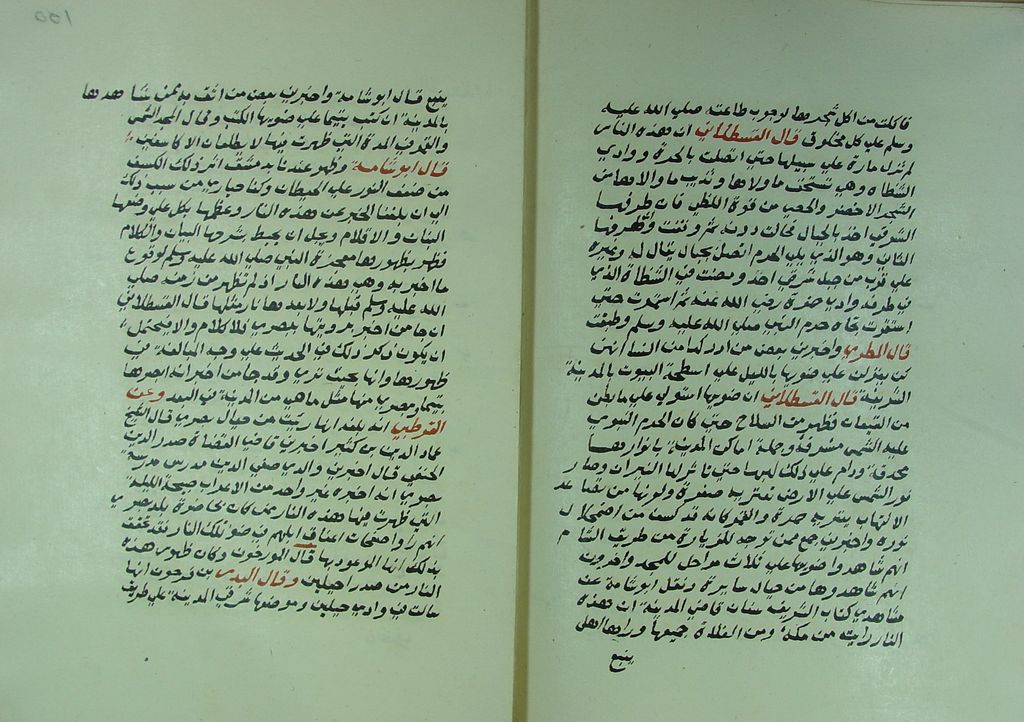 فاكلت من اكل شجرها لوجوب طاعته صلي الله عليه
وسلم علي كل مخلوق قال القسطلاني ان هذه النار
لم تزل مارة علي سبيلها حتي اتصلت بالحرة ووادي
الشظاة وهي تسحق ما ولاها وتذيب ما والاها من
الشجر الاخضر والحصي من قوة اللظي فان طرفها
الشرقي اخذ بالجبال فحالت دونه ثم وقفت وطرفها
الثاني وهو الذي يلي الحرم اتصل بجبال يقال له وعيره
علي قرب من جبل شرقي احد ومضت في الشظاة الذي
في طرفه وادي حمزة رضي الله عنه ثم استمرت حتي
استقرت تجاه حرم النبي صلي الله عليه وسلم وطفئت
قال المطري واخبرني بعض من ادركها من النسا انهن
كن يغزلن علي ضوئها بالليل علي اسطحة البيوت بالمدينة
الشريفة قال القسطلاني ان ضوئها استولي علي ما بطن
من القيعان وظهر من السلاح حتي كان الحرم النبوي
عليه الشمس مشرقة وجملة اماكن المدينة بانوارها
محدقة ودام علي ذلك لهبها حتي تاثر لها النيرات وصار
نور الشمس علي الارض تعتريه صفرة ولونها من تصاعد
الالتهاب يعتريه حمرة والقمر كانه قد كسف من اضمحلال
نوره واخبرني جمع ممن توجه للزيارة من طريق الشام
انهم شاهدوا ضوئها علي ثلاث مراحل للمجد واخرون
انهم شاهدوها من جبال سايرة ونقل ابوشامة عن
مشاهدي كتاب الشريف سنان قاضي المدينة ان هذه
النار رايت من مكة ومن الفلاة جميعها وراها اهل
ينبع
ينبع قال ابوشامة واخبرني بعض من اثق به ممن شاهدها
بالمدينة انه كتب بتيما علي ضوئها الكتب وقال المجد الشمس
والقمر في المدة التي ظهرت فيها لا يطلعان الا كاسفين
قال ابوشامة وظهر عندنا بدمشق اثر ذلك الكسف
من ضعف النور علي الحيطان وكنا حياري من سبب ذلك
الي ان بلغنا الخبر عن هذه النار وعظمها بكل علي وصفها
البنان والاقلام ويجل ان يحيط بشرحها البيان والكلام
فظهر بظهورها معجزة النبي صلي الله عليه وسلم لوقوع
ما اخبر به وهي هذه النار اذ لم تظهر من زمنه صلي
الله عليه وسلم قبلها ولا بعدها نار مثلها قال القسطلاني
ان جا من اخبر برويتها ببصري فلا كلام والا فيحتمل
ان يكون ذكر ذلك في الحديث علي وجه المبالغة في
ظهورها وانها بحيث تري وقد جا من اخبر انه ابصرها
بتيما وبصري منها مثل ما هي من المدينة في البعد وعن
القرطبي انه بلغه انها ريت من جبال بصري قال الشيخ
عماد الدين بن كثير اخبرني قاضي القضاة صدر الدين
الحنفي قال اخبرني والدي صفي الدين مدرس مدرسة
بصري انه اخبره غير واحد من الاعراب صبحة الليلة
التي ظهرت فيها هذه النار ممن كان بحاضرة بلد بصري
انهم راوا صفحات اعناق ابلهم في ضو تلك النار فتحققت
بذلك انها الموعود بها قال المورخون وكان ظهور هذه
النار من صدر احيلين وقال البدر بن فرحون انها
سالت في وادي احيلين وموضوعها شرقي المدينة علي طريق